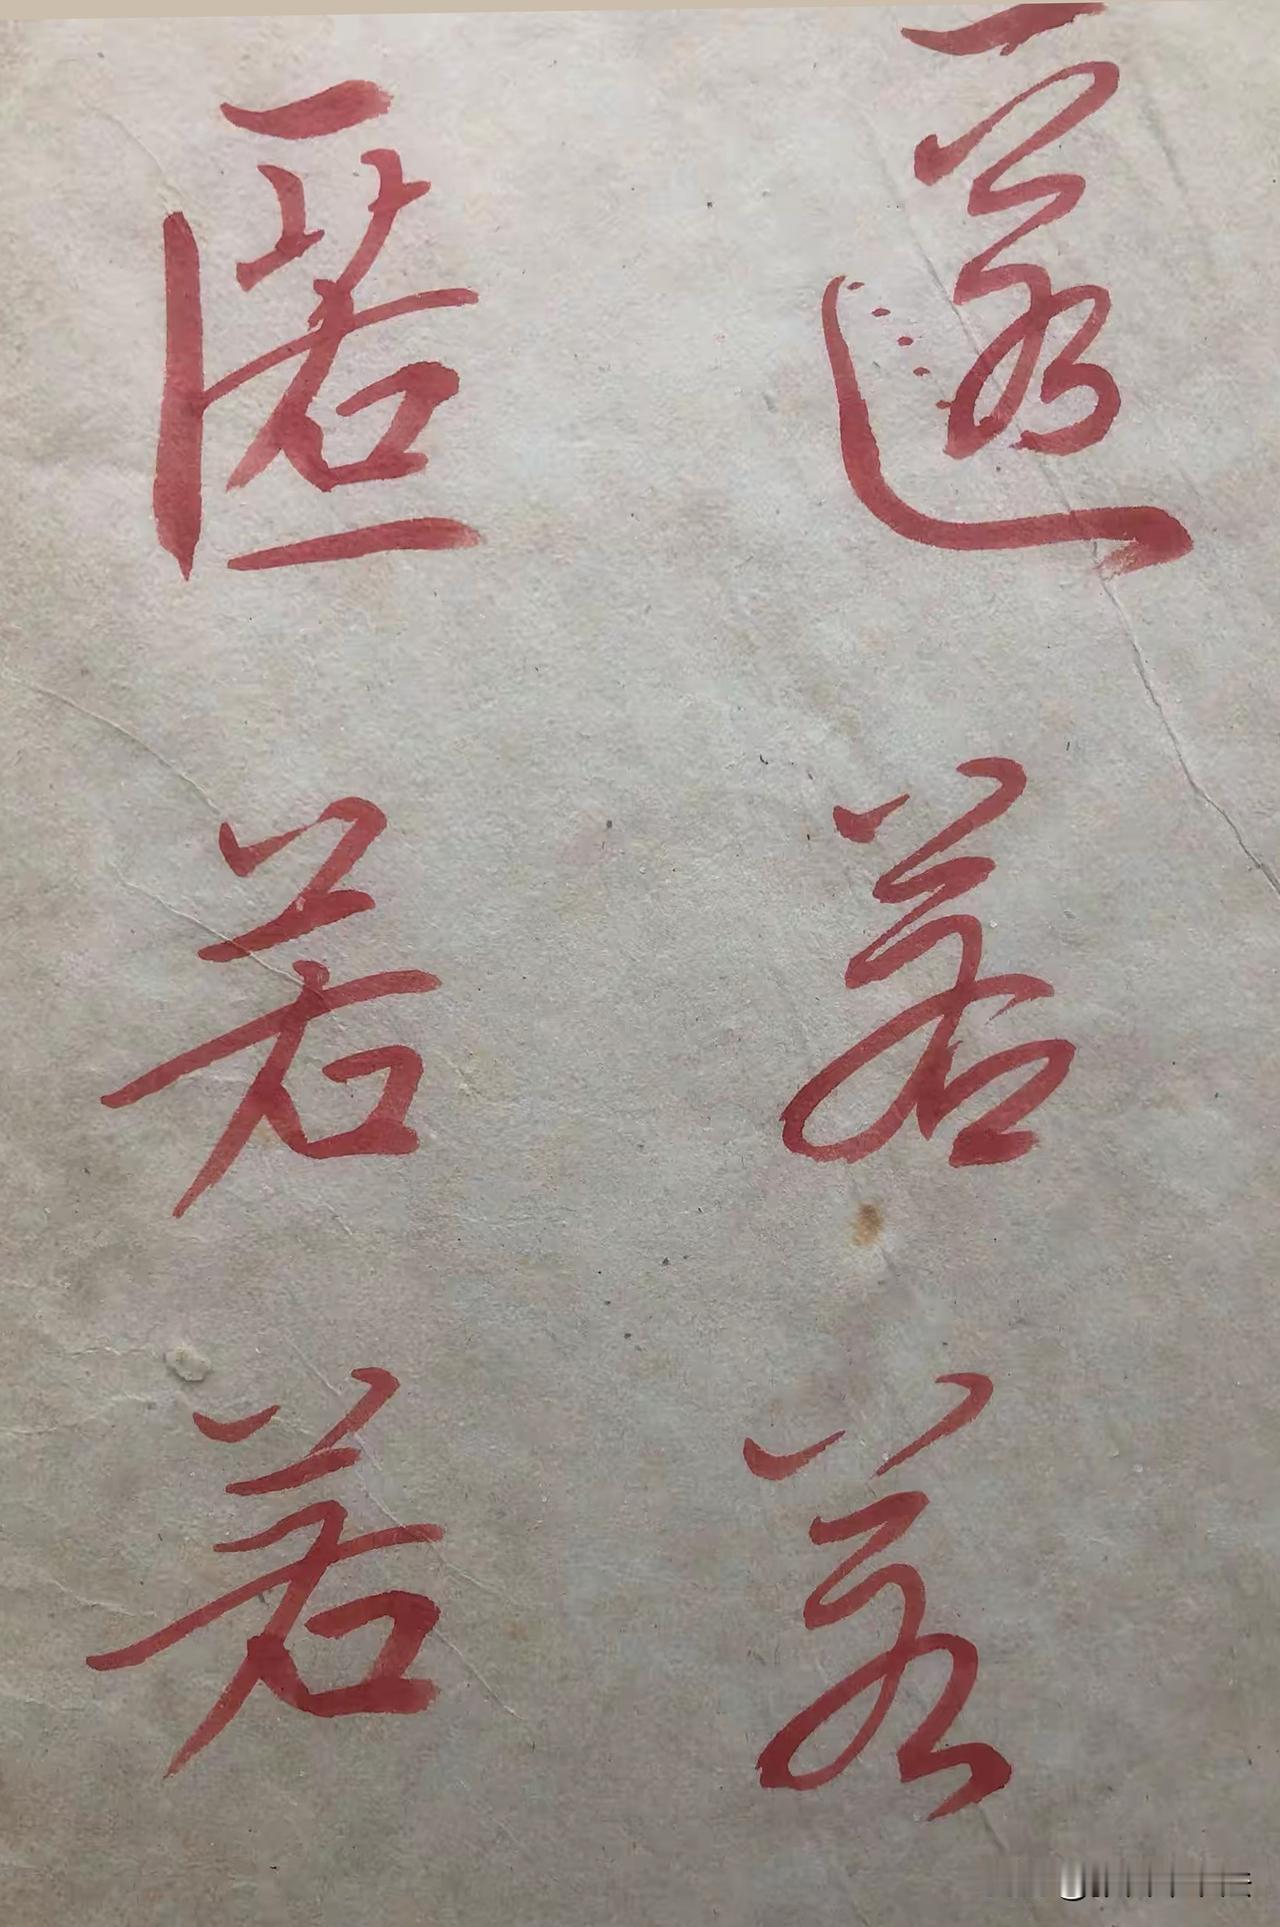 匿若若
匿若若